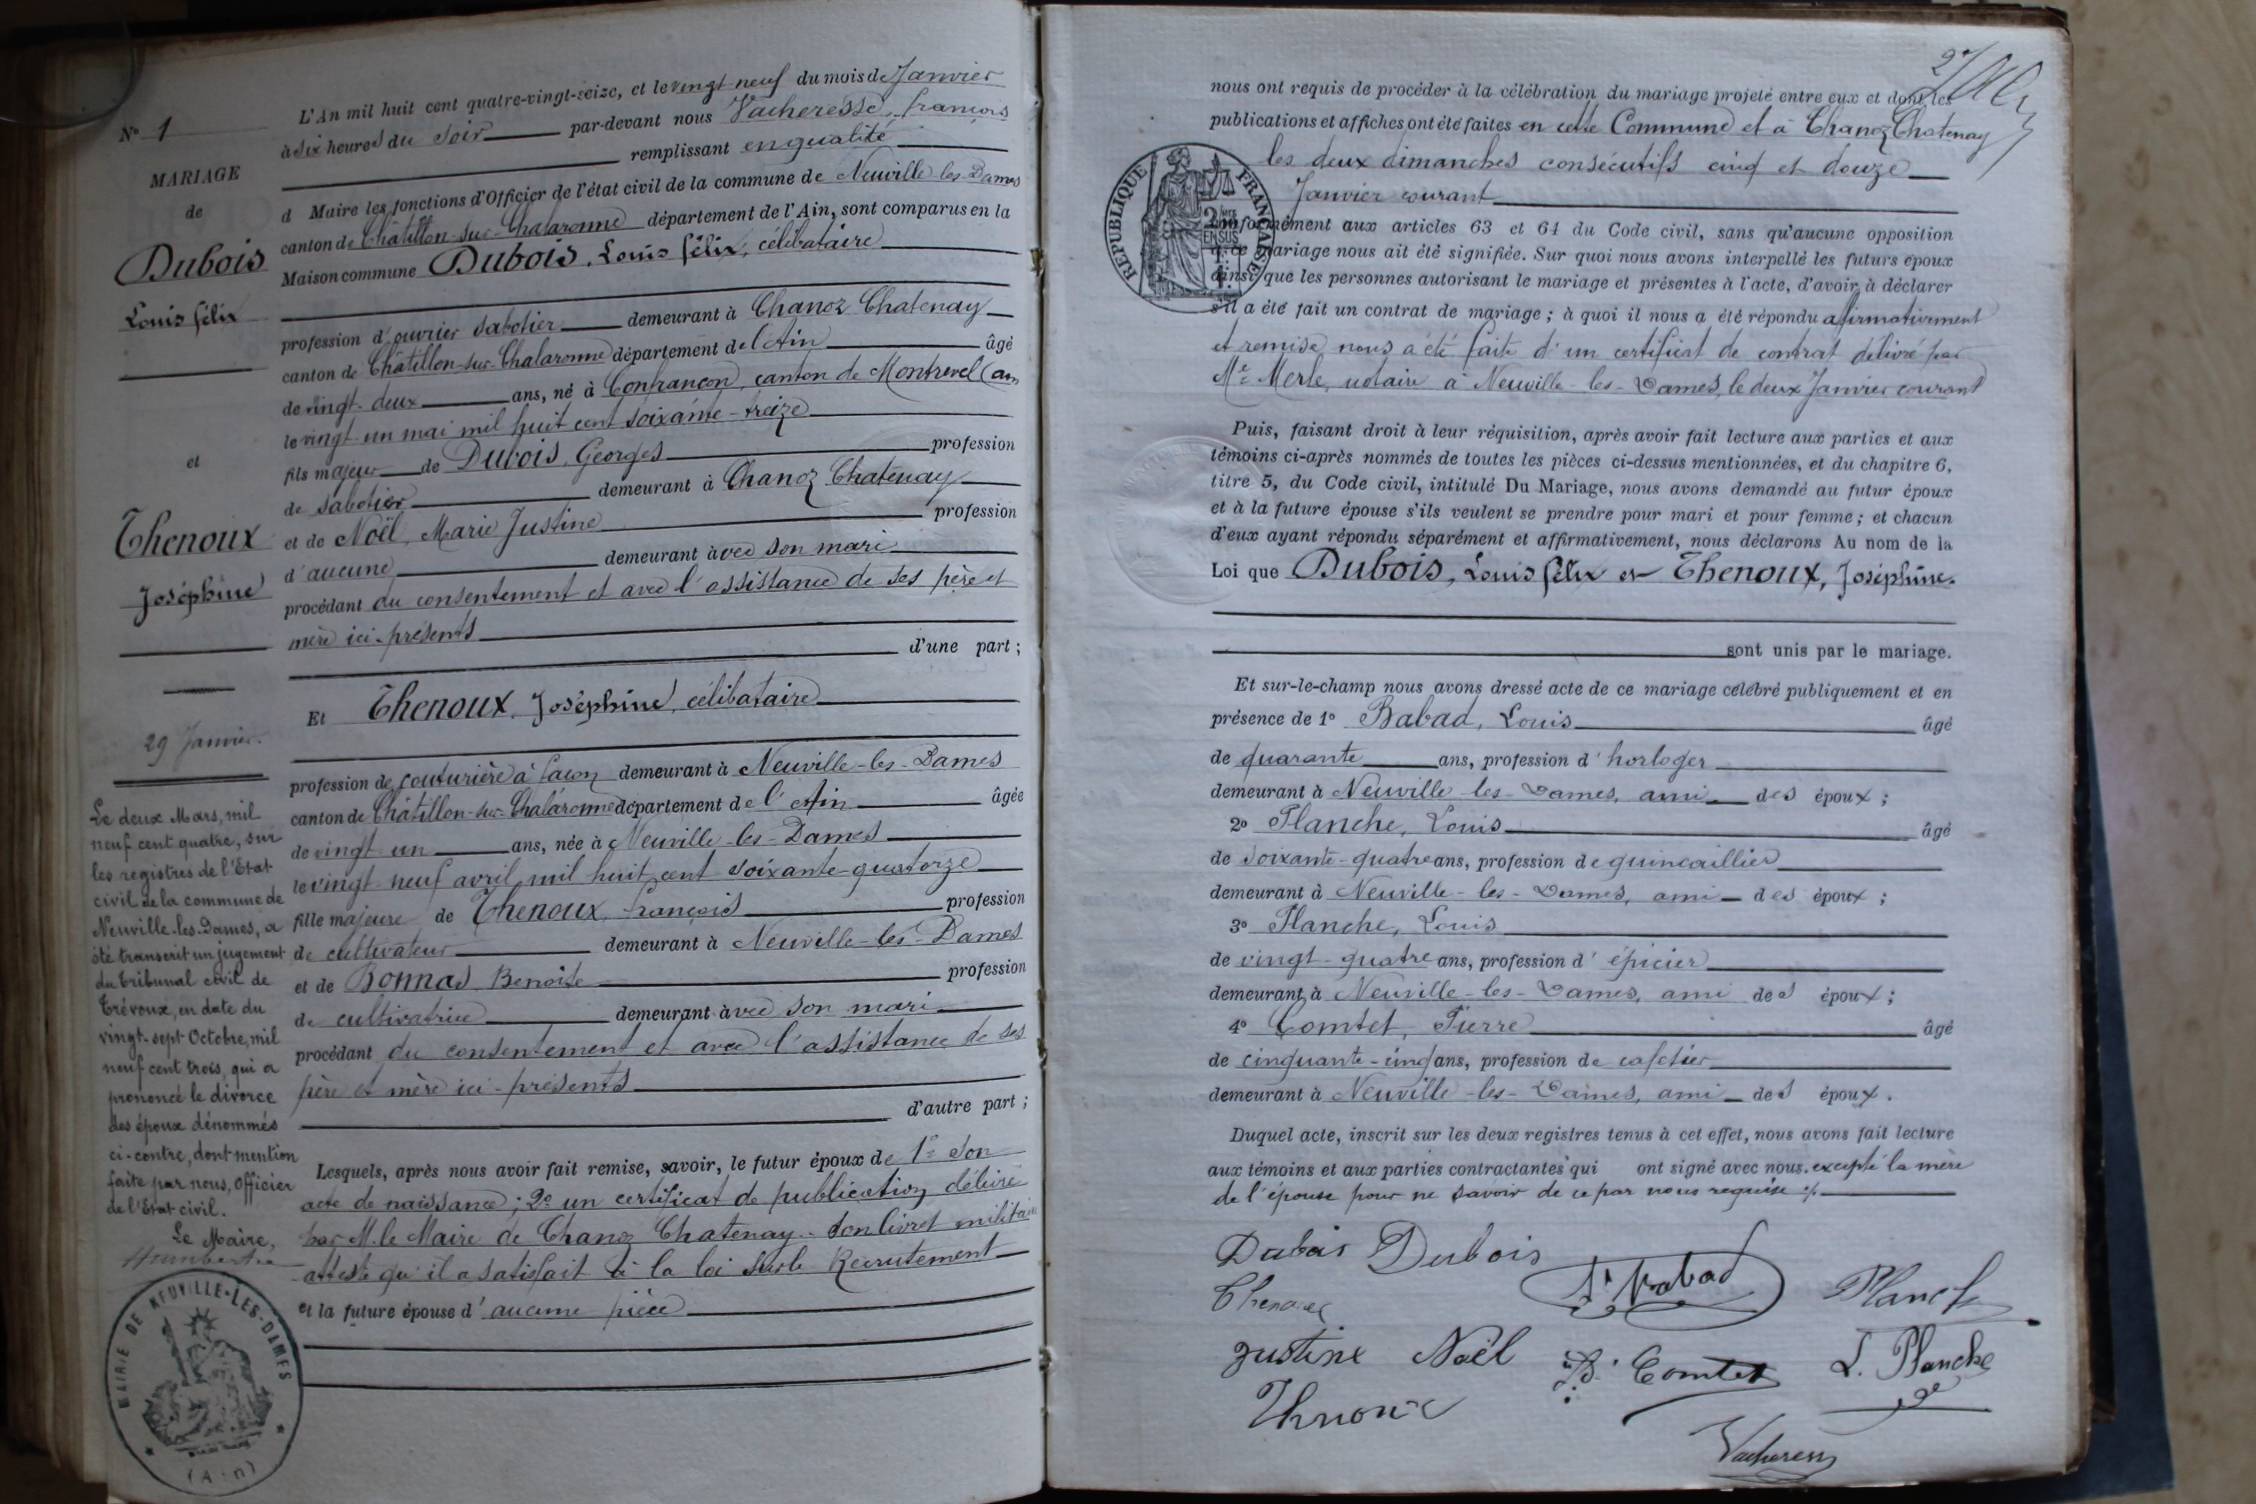 N° 1
MARIAGE
de
Dubois
Louis félix
et
Thenoux
Joséphine
29 Janvier.
Le deux Mars, mil
neuf cent quatre, sur
les registres de l'Etat
civil de la commune de
Neuville-les-Dames, a
été transcrit un jugement
du tribunal civil de
Trévoux, en date du
vingt-sept Octobre, mil
neuf cent trois, qui a
prononcé le divorce
des époux dénommés
ci-contre, dont mention
faite par nous, Officier
de l'Etat civil.
Le Maire,
MAIRIE DE NEUVILLE-LES-DAMES
(Ain)
L'An mil huit cent quatre-vingt-seize, et le vingt-neuf du mois de Janvier
à six heures du soir par-devant nous Vacheresse, françois
remplissant en qualité
d Maire les fonctions d'Officier de l'état civil de la commune de Neuville les Dames
canton de Châtillon-sur-Chalaronne département de l'Ain, sont comparus en la
Maison commune Dubois, Louis félix, célibataire
profession d'ouvrier sabotier demeurant à Chanoz Chatenay
canton de Châtillon-sur-Chalaronne département de l'Ain âgé
de vingt-deux ans, né à Confrançon, canton de Montrevel (ain
le vingt un mai mil huit cent soixante-treize
fils majeur de Dubois, Georges profession
de sabotier demeurant à Chanoz Chatenay
et de Noël, Marie Justine profession
d'aucune demeurant avec son mari
procédant du consentement et avec l'assistance de ses père et
mère ici-présents
d'une part ;
Et Thenoux, Joséphine, célibataire
profession de couturière à façon demeurant à Neuville-les-Dames
canton de Châtillon-sur-Chalaronne département de l'Ain âgée
de vingt un ans, née à Neuville-les-Dames
le vingt neuf avril mil huit cent soixante-quatorze
fille majeure de Thenoux, françois profession
de cultivateur demeurant à Neuville-les-Dames
et de Bonnas, Benoite profession
de cultivatrice demeurant avec son mari
procédant du consentement et avec l'assistance de ses
père et mère ici-présents
d'autre part ;
Lesquels, après nous avoir fait remise, savoir, le futur époux de 1° son
acte de naissance ; 2° un certificat de publication délivré
par M. le Maire de Chanoz Chatenay. Son livret militaire
atteste qu'il a satisfait à la loi sur le Recrutement
et la future épouse d'aucune pièce
2
nous ont requis de procéder à la célébration du mariage projeté entre eux et dont les
publications et affiches ont été faites en cette Commune et à Chanoz Chatenay
les deux dimanches consécutifs cinq et douze
Janvier courant
RÉPUBLIQUE FRANÇAISE
conformément aux articles 63 et 64 du Code civil, sans qu'aucune opposition
à ce mariage nous ait été signifiée. Sur quoi nous avons interpellé les futurs époux
ainsi que les personnes autorisant le mariage et présentes à l'acte, d'avoir à déclarer
s'il a été fait un contrat de mariage ; à quoi il nous a été répondu afirmativement
et remise nous a été faite d'un certificat de contrat délivré par
Me Merle, notaire à Neuville-les-Dames, le deux Janvier courant
Puis, faisant droit à leur réquisition, après avoir fait lecture aux parties et aux
témoins ci-après nommés de toutes les pièces ci-dessus mentionnées, et du chapitre 6,
titre 5, du Code civil, intitulé Du Mariage, nous avons demandé au futur époux
et à la future épouse s'ils veulent se prendre pour mari et pour femme ; et chacun
d'eux ayant répondu séparément et affirmativement, nous déclarons Au nom de la
Loi que Dubois, Louis félix et Thenoux, Joséphine.
sont unis par le mariage.
Et sur-le-champ nous avons dressé acte de ce mariage célébré publiquement et en
présence de 1° Babad, Louis âgé
de quarante ans, profession d'horloger
demeurant à Neuville-les-Dames, ami des époux ;
2° Planche, Louis âgé
de soixante-quatre ans, profession de quincaillier
demeurant à Neuville-les-Dames, ami des époux ;
3° Planche, Louis
de vingt-quatre ans, profession d'épicier
demeurant à Neuville-les-Dames, ami des époux ;
4° Comtet, Pierre âgé
de cinquante-cinq ans, profession de cafetier
demeurant à Neuville-les-Dames, ami des époux.
Duquel acte, inscrit sur les deux registres tenus à cet effet, nous avons fait lecture
aux témoins et aux parties contractantes qui ont signé avec nous. excepté la mère
de l'épouse pour ne savoir de ce par nous requise %.
Dubois Dubois
Thenoux Babad Planche
Justine Noël Comtet L. Planche
Thenoux
Vacheresse